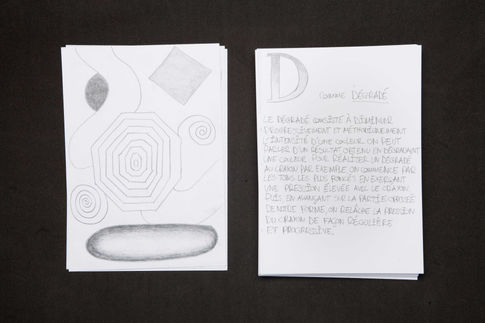 D
COMME DÉGRADÉ
LE DÉGRADÉ CONSISTE À DIMINUER
PROGRESSIVEMENT ET MÉTHODIQUEMENT
L'INTENSITÉ D'UNE COULEUR. ON PEUT
PARLER D'UN RÉSULTAT OBTENU EN DÉGRADANT
UNE COULEUR. POUR RÉALISER UN DÉGRADÉ
AU CRAYON PAR EXEMPLE ON COMMENCE PAR
LES TONS LES PLUS FONCÉS EN EXERÇANT
UNE PRESSION ÉLEVÉE AVEC LE CRAYON
PUIS, EN AVANÇANT SUR LA PARTIE OPPOSÉE
DE NOTRE FORME, ON RELÂCHE LA PRESSION
DU CRAYON DE FAÇON RÉGULIÈRE
ET PROGRESSIVE.